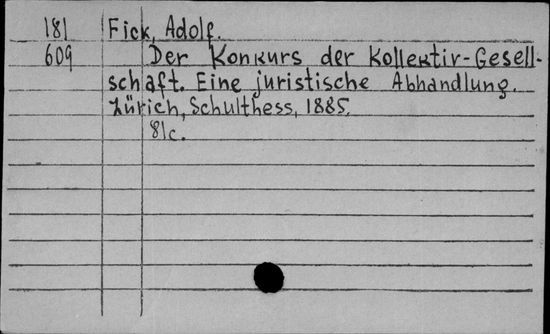 181 Fick, Adolf.
609 Der Konkurs der Kollektiv-Gesell-
schaft. Eine juristische Abhandlung.
Zürich, Schulthess, 1885.
8lc.